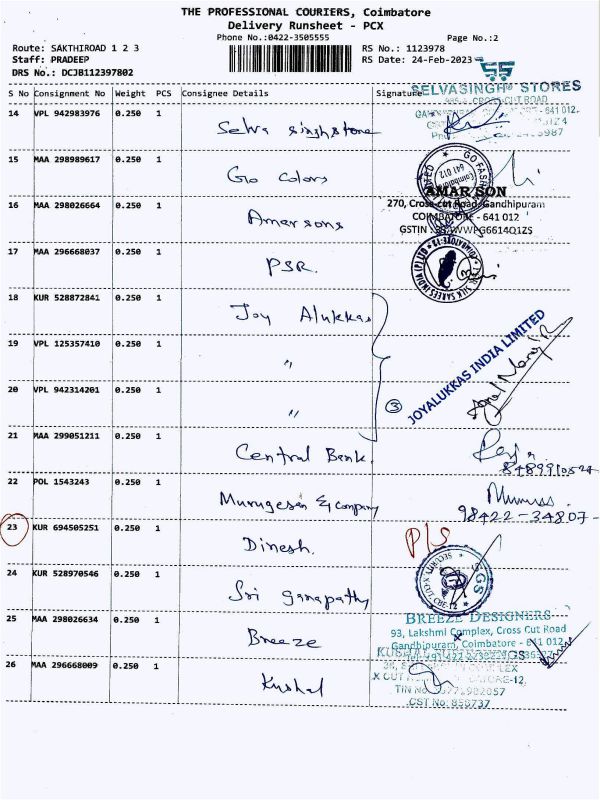 THE PROFESSIONAL COURIERS, Coimbatore
Delivery Runsheet - PCX
Phone No.:0422-3505555
Page No.:2
Route: SAKTHIROAD 1 2 3
RS No.: 1123978
Staff: PRADEEP
RS Date: 24-Feb-2023
DRS No.: DCJB112397802
S No Consignment No Weight PCS Consignee Details Signature
SELVASINGH STORES
CROSS CUT ROAD
14 VPL 942983976 0.250 1 Selva Singh stone
15 MAA 298989617 0.250 1 Go Colors
GO FASHI
Coimbatore
641 012
16 MAA 298026664 0.250 1 Amarsons
AMAR SON
270, Cross-cut Road, Gandhipuram
COIMBATORE - 641 012
17 MAA 296668037 0.250 1 PSR.
PSR SILK SAREES INDIA (P) LTD
18 KUR 528872841 0.250 1 Joy Alukkas
19 VPL 125357410 0.250 1 "
20 VPL 942314201 0.250 1 "
3
JOYALUKKAS INDIA LIMITED
21 MAA 299051211 0.250 1 Central Bank.
22 POL 1543243 0.250 1 Murugesan & company
98422-34807-
23 KUR 694505251 0.250 1 Dinesh.
P/S
24 KUR 528970546 0.250 1 Sri Ganapathy
25 MAA 298026634 0.250 1 Breeze
BREEZE DESIGNERS
93, Lakshmi Complex, Cross Cut Road
Gandhipuram, Coimbatore - 641 012
26 MAA 296668009 0.250 1 Kushal